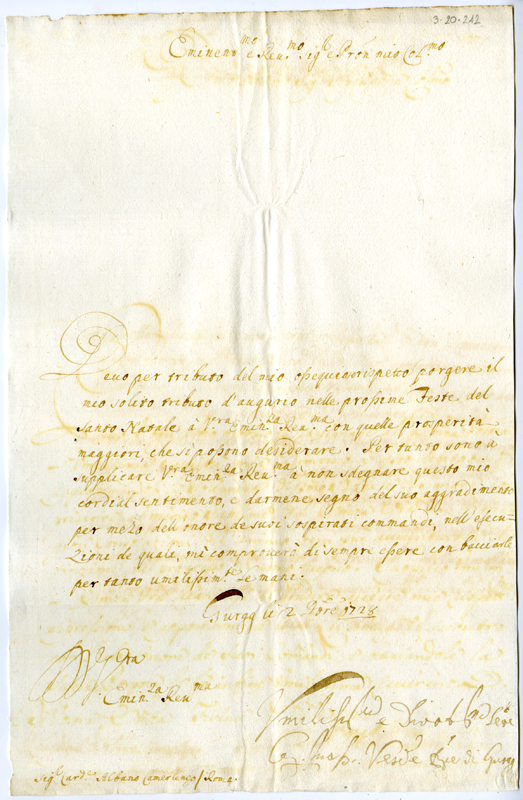 3-20-212
Eminen.mo e Reu.mo Sig.r e Prõn mio Col.mo
Deuo per tributo del mio ossequiosorispetto porgere il
mio solito tributo d'augurio nelle prossime Feste del
Santo Natale à V.ra Emin.za Reu.ma con quelle prosperità
maggiori, che si possono desiderare. Per tanto sono à
supplicare V.ra Emin.za Reu.ma à non sdegnare questo mio
cordial sentimento, e darmene segno del suo aggradimento
per mezo dell'onore de suoi sospirati commandi, nell'esecu-
zioni de quali, mi comprouerò di sempre essere con bacciarle
per tanto umilissim.te le mani.
li 2 1728
Emin.za Reu.ma
Vmiliss.o e Diuot.
di
Sig.r Card. Albano Camerlengo / Roma.